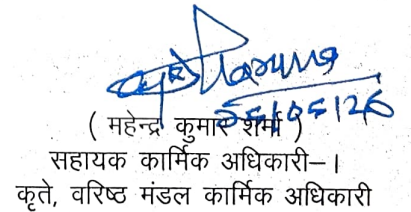 ( महेन्द्र कुमार शर्मा )
सहायक कार्मिक अधिकारी–।
कृते, वरिष्ठ मंडल कार्मिक अधिकारी